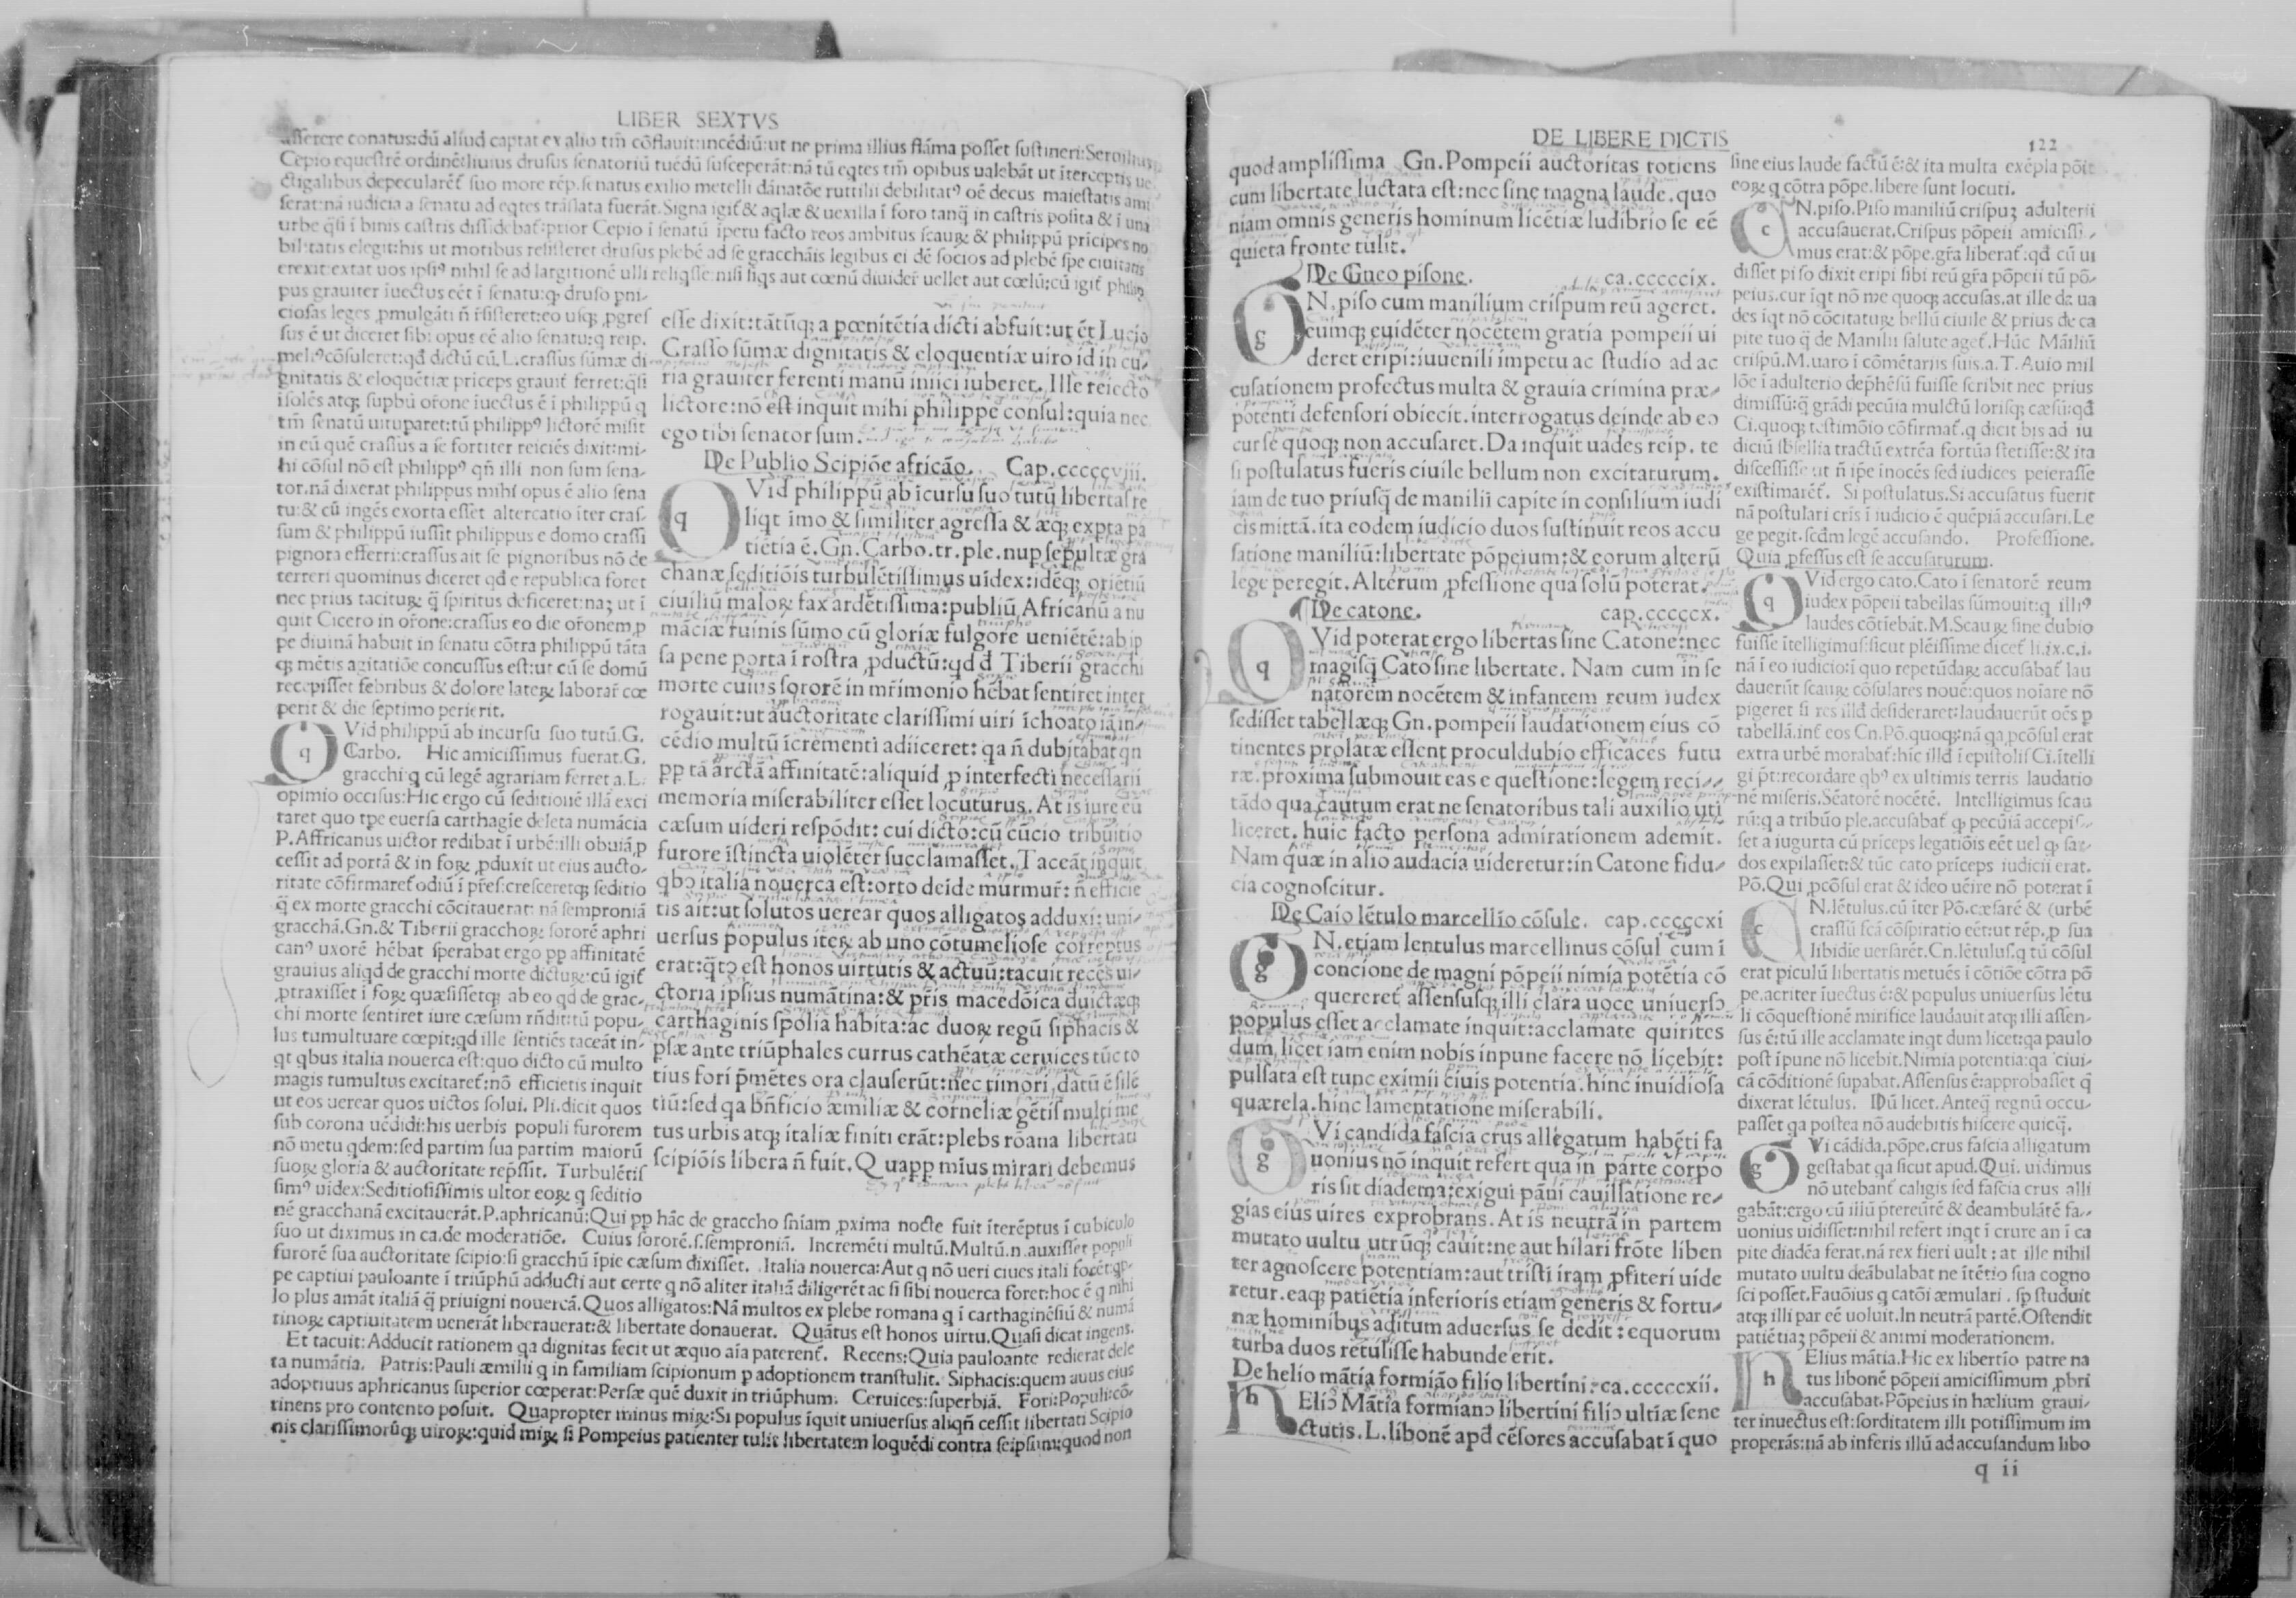 LIBER SEXTVS
asserere conatus:dū aliud captat ex alio tm̄ cōflauit:incēdiū:ut ne prima illius flāma posset sustineri:Seruilius
Cepio equestrē ordinē:liuius drusus senatoriū tuēdū susceperāt:nā tū eqtes tm̄ opibus ualebāt ut īterceptis ue
ctigalibus depecularēt̄ suo more rēp.senatus exilio metelli dānatōe ruttilii debilitatꝰ oē decus maiestatis ami
serat:nā iudicia a senatu ad eqtes trāslata fuerāt.Signa igit̄ & aqlæ & uexilla ī foro tanq̄ in castris posita & ī una
urbe q̄si ī binis castris dissidebat̄:prior Cepio ī senatū īpetu facto reos ambitus scauꝝ & philippū prīcipes no
bilitatis elegit:his ut motibus resisteret drusus plebē ad se gracchāis legibus ei dē socios ad plebē spe ciuitatis
erexit:extat uos ipsiꝰ nihil se ad largitionē ulli reliqsse:nisi siqs aut cœnū diuider̄ uellet aut cœlū;cū igit̄ philip
pus grauiter īuectus eēt ī senatu:ꝙ druso pni-
ciosas leges ꝓmulgāti n̄ r̄sisteret:eo usꝗ ꝓgres
sus ē ut diceret sibi opus eē alio senatu:q reip.
meliꝰ cōsuleret:qđ dictū cū.L.crassus sūmæ di
gnitatis & eloquētiæ prīceps grauit̄ ferret:q̄si
īsolēs atꝗ supbū or̄one īuectus ē ī philippū q
tm̄ senatū uituparet:tū philippꝰ lictorē misit
in eū quē crassus a se fortiter reiciēs dixit:mi-
hi cōsul nō est philippꝰ qn̄ illi non sum sena-
tor.nā dixerat philippus mihi opus ē alio sena
tu:& cū ingēs exorta esset altercatio īter cras-
sum & philippū iussit philippus e domo crassi
pignora efferri:crassus ait se pignoribus nō de
terreri quominus diceret qđ e republica foret
nec prius tacituꝝ q̄ spiritus deficeret:naȝ ut ī
quit Cicero in or̄one:crassus eo die or̄onem,ꝓ
pe diuinā habuit in senatu cōtra philippū tāta
ꝙ mētis agitatiōe concussus est:ut cū se domū
recepisset febribus & dolore lateꝝ laborar̄ cœ
perit & die septimo perierit.
QVid philippū ab incursu suo tutū.G.
Carbo. Hic amicissimus fuerat.G.
gracchi q cū legē agrariam ferret a.L.
opimio occisus:Hic ergo cū seditionē illā exci
taret quo tpe euersa carthagīe deleta numācia
P.Affricanus uictor redibat ī urbē:illi obuiā,ꝓ
cessit ad portā & in foꝝ ꝓduxit ut eius aucto-
ritate cōfirmaret̄ odiū ī pr̄es:cresceretꝗ seditio
q̄ ex morte gracchi cōcitauerat: nā semproniā
gracchā.Gn.& Tiberii gracchoꝝ sororē aphri
canꝰ uxorē hēbat sperabat ergo pp affinitatē
grauius aliqđ de gracchi morte dictuꝝ:cū igit̄
ꝓtraxisset ī foꝝ quæsissetꝗ ab eo qđ de grac-
chi morte sentiret iure cæsum rn̄dit:tū popu-
lus tumultuare cœpit:qđ ille sentiēs taceāt in-
qt qbus italia nouerca est:quo dicto cū multo
magis tumultus excitaret̄:nō efficietis inquit
ut eos uerear quos uictos solui. Pli.dicit quos
sub corona uēdidi:his uerbis populi furorem
nō metu qdem:sed partim sua partim maiorū
suoꝝ gloria & auctoritate rep̄ssit. Turbulētis
simꝰ uidex:Seditiosissimis ultor eoꝝ q seditio
nē gracchanā excitauerāt.P.aphricanū:Qui pp hāc de graccho sn̄iam ꝓxima nocte fuit īterēptus ī cubiculo
suo ut diximus in ca.de moderatiōe. Cuius sororē.s.semproniā. Incremēti multū.Multū.n.auxisset populi
furorē sua auctoritate scipio:si gracchū īpie cæsum dixisset. Italia nouerca:Aut q nō ueri ciues itali forēt:qp-
pe captiui pauloante ī triūphū adducti aut certe q nō aliter italiā diligerēt ac si sibi nouerca foret:hoc ē q nihi
lo plus amāt italiā q̄ priuigni nouercā.Quos alligatos:Nā multos ex plebe romana q ī carthaginēsiū & numā
tinoꝝ captiuitatem uenerāt liberauerat:& libertate donauerat. Quātus est honos uirtu.Quasi dicat ingens.
Et tacuit:Adducit rationem qa dignitas fecit ut æquo aīa paterent̄. Recens:Quia pauloante redierat dele
ta numātia. Patris:Pauli æmilii q in familiam scipionum p adoptionem transtulit. Siphacis:quem auus eius
adoptiuus aphricanus superior cœperat:Persæ quē duxit in triūphum. Ceruices:superbiā. Fori:Populi:cō-
tinens pro contento posuit. Quapropter minus miꝝ:Si populus īquit uniuersus aliqn̄ cessit libertati Scipio
nis clarissimorūꝗ uiroꝝ:quid miꝝ si Pompeius patienter tulit libertatem loquēdi contra seipsum:quod non
esse dixit:tātūꝗ a pœnitētia dicti abfuit:ut ēt Lucio
Crasso sūmæ dignitatis & eloquentiæ uiro id in cu-
ria grauiter ferenti manū iniici iuberet. Ille reiecto
lictore:nō est inquit mihi philippe consul:quia nec
ego tibi senator sum.
De Publio Scipiōe africāo. Cap.cccccviii.
QVid philippū ab īcursu suo tutū libertas re
liqt īmo & similiter agressa & æꝗ expta pa
tiētia ē.Gn.Carbo.tr.ple.nup sepultæ gra
chanæ seditiōis turbulētissimus uidex:idēꝗ oriētiū
ciuiliū maloꝝ fax ardētissima:publiū Africanū a nu
māciæ ruinis sūmo cū gloriæ fulgore ueniētē:ab ip
sa pene porta ī rostra ꝓductū:qđ đ Tiberii gracchi
morte cuius sororē in mr̄imonio hēbat sentiret inter
rogauit:ut auctoritate clarissimi uiri īchoato iā in-
cēdio multū īcrementi adiiceret: qa n̄ dubitabat qn
pp tā arctā affinitatē:aliquid ꝓ interfecti necessarii
memoria miserabiliter esset locuturus. At is iure eū
cæsum uideri respōdit: cui dicto:cū cūcio tribuitio
furore īstincta uiolēter succlamasset. Taceāt inquit
qbꝰ italia nouerca est:orto deīde murmur̄: n̄ efficie
tis ait:ut solutos uerear quos alligatos adduxi: uni-
uersus populus iteꝝ ab uno cōtumeliose correptus
erat:q̄tꝰ est honos uirtutis & actuū:tacuit recēs ui-
ctoria ipsius numātina:& pr̄is macedōica duictæꝗ
carthaginis spolia habita:ac duoꝝ regū siphacis &
psæ ante triūphales currus cathēatæ ceruices tūc to
tius fori p̄mētes ora clauserūt:nec timori datū ē silē
tiū:sed qa bn̄ficio æmiliæ & corneliæ gētis multi me
tus urbis atꝗ italiæ finiti erāt:plebs rōana libertati
scipiōis libera n̄ fuit. Quapp mius mirari debemus
DE LIBERE DICTIS
122
quod amplissima Gn.Pompeii auctoritas totiens
cum libertate luctata est:nec sine magna laude. quo
niam omnis generis hominum licētiæ ludibrio se eē
quieta fronte tulit.
De Gneo pisone. ca.cccccix.
GN.piso cum manilium crispum reū ageret.
eumꝗ euidēter nocētem gratia pompeii ui
deret eripi:iuuenili impetu ac studio ad ac
cusationem profectus multa & grauia crimina præ-
potenti defensori obiecit. interrogatus deinde ab eo
cur se quoꝗ non accusaret.Da inquit uades reip. te
si postulatus fueris ciuile bellum non excitaturum.
iam de tuo priusq̄ de manilii capite in consilium iudi
cis mittā.ita eodem iudicio duos sustinuit reos accu
satione maniliū:libertate pōpeium:& eorum alterū
lege peregit.Alterum ꝓfessione qua solū poterat.
¶De catone. cap.cccccx.
QVid poterat ergo libertas sine Catone:nec
magisq̄ Cato sine libertate. Nam cum in se
natorem nocētem & infantem reum iudex
sedisset tabellæꝗ Gn.pompeii laudationem eius cō
tinentes prolatæ essent proculdubio efficaces futu
ræ.proxima submouit eas e questione:legem reci-
tādo qua cautum erat ne senatoribus tali auxilio uti
liceret. huic facto persona admirationem ademit.
Nam quæ in alio audacia uideretur:in Catone fidu-
cia cognoscitur.
De Caio lētulo marcellīo cōsule. cap.cccccxi
GN.etiam lentulus marcellinus cōsul cum ī
concione de magni pōpeii nimia potētia cō
quereret̄ assensusꝗ illi clara uoce uniuersꝰ
populus esset acclamate inquit:acclamate quirites
dum licet iam enim nobis inpune facere nō licebit:
pulsata est tunc eximii ciuis potentia.hinc inuidiosa
quærela.hinc lamentatione miserabili.
QVi candida fascia crus allegatum habēti fa
uonius nō inquit refert qua in parte corpo
ris sit diadema:exigui pāni cauillatione re-
gias eius uires exprobrans. At is neutrā in partem
mutato uultu utrūꝗ cauit:ne aut hilari frōte liben
ter agnoscere potentiam:aut tristi iram ꝓfiteri uide
retur.eaꝗ patiētia inferioris etiam generis & fortu-
næ hominibus aditum aduersus se dedit: equorum
turba duos retulisse habunde erit.
De helio mātia formiāo filio libertini. ca.cccccxii.
HElꝰ Mātia formianꝰ libertini filiꝰ ultīæ sene
ctutis.L.libonē apđ cēsores accusabat ī quo
sine eius laude factū ē:& ita multa exēpla pōit
eoꝝ q cōtra pōpe.libere sunt locuti.
CN.piso.Piso maniliū crispuȝ adulterii
accusauerat.Crispus pōpeii amicissi-
mus erat:& pōpe.gr̄a liberat̄:qđ cū ui
disset piso dixit eripi sibi reū gr̄a pōpeii tū pō-
peius.cur īqt nō me quoꝗ accusas.at ille da ua
des īqt nō cōcitatuꝝ bellū ciuile & prius de ca
pite tuo q̄ de Manilii salute aget̄.Hūc Māiliū
crispū.M.uaro ī cōmētariis suis.a.T.Auio mil
lōe ī adulterio dep̄hēsū fuisse scribit nec prius
dimissū:q̄ grādi pecūia mulctū lorisꝗ cæsū:qđ
Ci.quoꝗ testimōio cōfirmat̄.q dicit bis ad iu
diciū sbsellia tractū extrēa fortūa stetisse:& ita
discessisse ut n̄ ip̄e inocēs sed iudices peierasse
existimarēt̄. Si postulatus.Si accusatus fuerit
nā postulari cris ī iudicio ē quēpiā accusari.Le
ge pegit.scđm legē accusando. Professione.
Quia ꝓfessus est se accusaturum.
QVid ergo cato.Cato ī senatorē reum
iudex pōpeii tabellas sūmouit:q illiꝰ
laudes cōtiebāt.M.Scauꝝ sine dubio
fuisse ītelligimus:sicut plēissime dicet̄ li.ix.c.i.
nā ī eo iudicio:ī quo repetūdaꝝ accusabat̄ lau
dauerūt scauꝝ cōsulares nouē:quos noīare nō
pigeret si res illđ desideraret:laudauerūt oēs p
tabellā.int̄ eos Cn.Pō.quoꝗ:nā qa ꝓcōsul erat
extra urbē morabat̄:hic illđ ī epistolis Ci.ītelli
gi p̄t:recordare qbꝰ ex ultimis terris laudatio
nē miseris.Sēatorē nocētē. Intelligimus scau
rū:q a tribūo ple.accusabat̄ ꝙ pecūiā accepis-
set a iugurta cū prīceps legatiōis eēt uel ꝙ sar-
dos expilasset:& tūc cato prīceps iudicii erat.
Pō.Qui ꝓcōsul erat & ideo uēire nō poterat ī
CN.lētulus.cū īter Pō.cæsarē & (urbē
crassū scā cōspiratio eēt:ut rēp.ꝓ sua
libidīe uersarēt.Cn.lētulus.q tū cōsul
erat piculū libertatis metuēs ī cōtiōe cōtra pō
pe.acriter īuectus ē:& populus uniuersus lētu
li cōquestionē mirifice laudauit atꝗ illi assen-
sus ē:tū ille acclamate inqt dum licet:qa paulo
post īpune nō licebit.Nimia potentia:qa ciui-
cā cōditionē supabat.Assensus ē:approbasset q̄
dixerat lētulus. Dū licet.Anteq̄ regnū occu-
passet qa postea nō audebitis hiscere quicꝗ.
QVi cādida.pōpe.crus fascia alligatum
gestabat qa sicut apud.Qui. uidimus
nō utebant̄ caligis sed fascia crus alli
gabāt:ergo cū illū ptereūtē & deambulātē fa-
uonius uidisset:nihil refert inqt ī crure an ī ca
pite diadēa ferat.nā rex fieri uult: at ille nihil
mutato uultu deābulabat ne ītētio sua cogno
sci posset.Fauōius q catōi æmulari . sp studuit
atꝗ illi par eē uoluit.In neutrā partē.Ostendit
patiētiaȝ pōpeii & animi moderationem.
HElius mātia.Hic ex libertīo patre na
tus libonē pōpeii amicissimum ꝓbri
accusabat.Pōpeius in hælium graui-
ter inuectus est:sorditatem illi potissimum im
properās:nā ab inferis illū ad accusandum libo
q ii